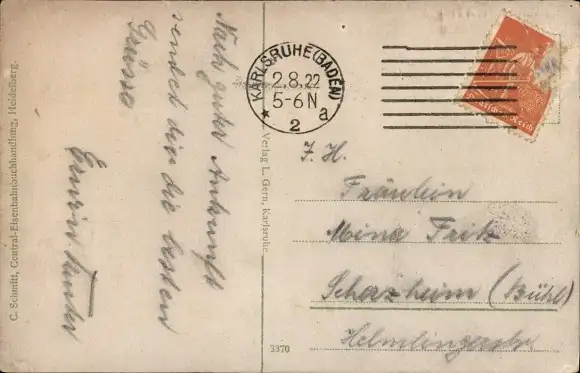 Nach guter Ankunft
sendet dir die besten
Grüsse
C. Schmitt, Central-Eisenbahnbuchhandlung, Heidelberg.
Verlag L. Gern, Karlsruhe.
3370
KARLSRUHE (BADEN)
2.8.22
5-6 N
* 2 a
Deutsches Reich
J. H.
Fräulein
Mina Fritz
Scherzheim (Bühl)
Helmlingerstr.